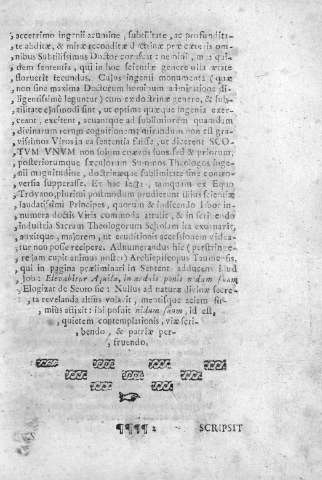 , acerrimo ingenii acumine, subtilitate, ac profundita-
te abditæ, & miræ reconditæ doctrinæ præ cæteris om-
nibus Subtilissimus Doctor
dem sententia, qui in hoc scientiæ genere ulla ætate
floruerit secundus. Cujus ingenii monumenta (quæ
non sine maxima Doctorum hominum admiratione di-
ligentissime leguntur) cum ex doctrinæ genere, & sub-
tilitate ejusmodi sint, ut optime quæque ingenia exer-
ceant, excitent, acuantque ad sublimiorem quandam
divinarum rerum cognitionem; mirandum non est gra-
vissimos Viros in ea sententia fuisse, ut dicerent SCO-
TUM UNUM non solum coævos suos sed & priorum,
posteriorumque sæculorum Summos Theologos inge-
nii magnitudine, doctrinæque sublimitate sine contro-
versia superasse. Et hac tanquam ex Equo
Troyano, plurimi postmodum prodierunt illius scientiæ
laudatissimi Principes, quorum & indicendo labor in-
numera doctis Viris commoda attulit, & in scribendo
industria Sacram Theologorum Scholam ita exornavit,
auxitque, majorem, ut eruditionis accessionem videa-
tur non posse recipere. Adnumerandus hic (perstringe-
re jam cupit animus noster) Archiepiscopus
qui in pagina præliminari in Sentent. adducens illud
Job: Elevabitur Aquila, in arduis ponit nidum suum,
Elogizat de Scoto sic: Nullus ad naturæ divinæ secre-
ta revelanda altius volavit, mentisque aciem fir-
mius affixit: ibi posuit nidum suum, id est,
quietem contemplationis, viæ scri-
bendo, & patriæ per-
fruendo.
¶¶¶¶ 2 SCRIPSIT